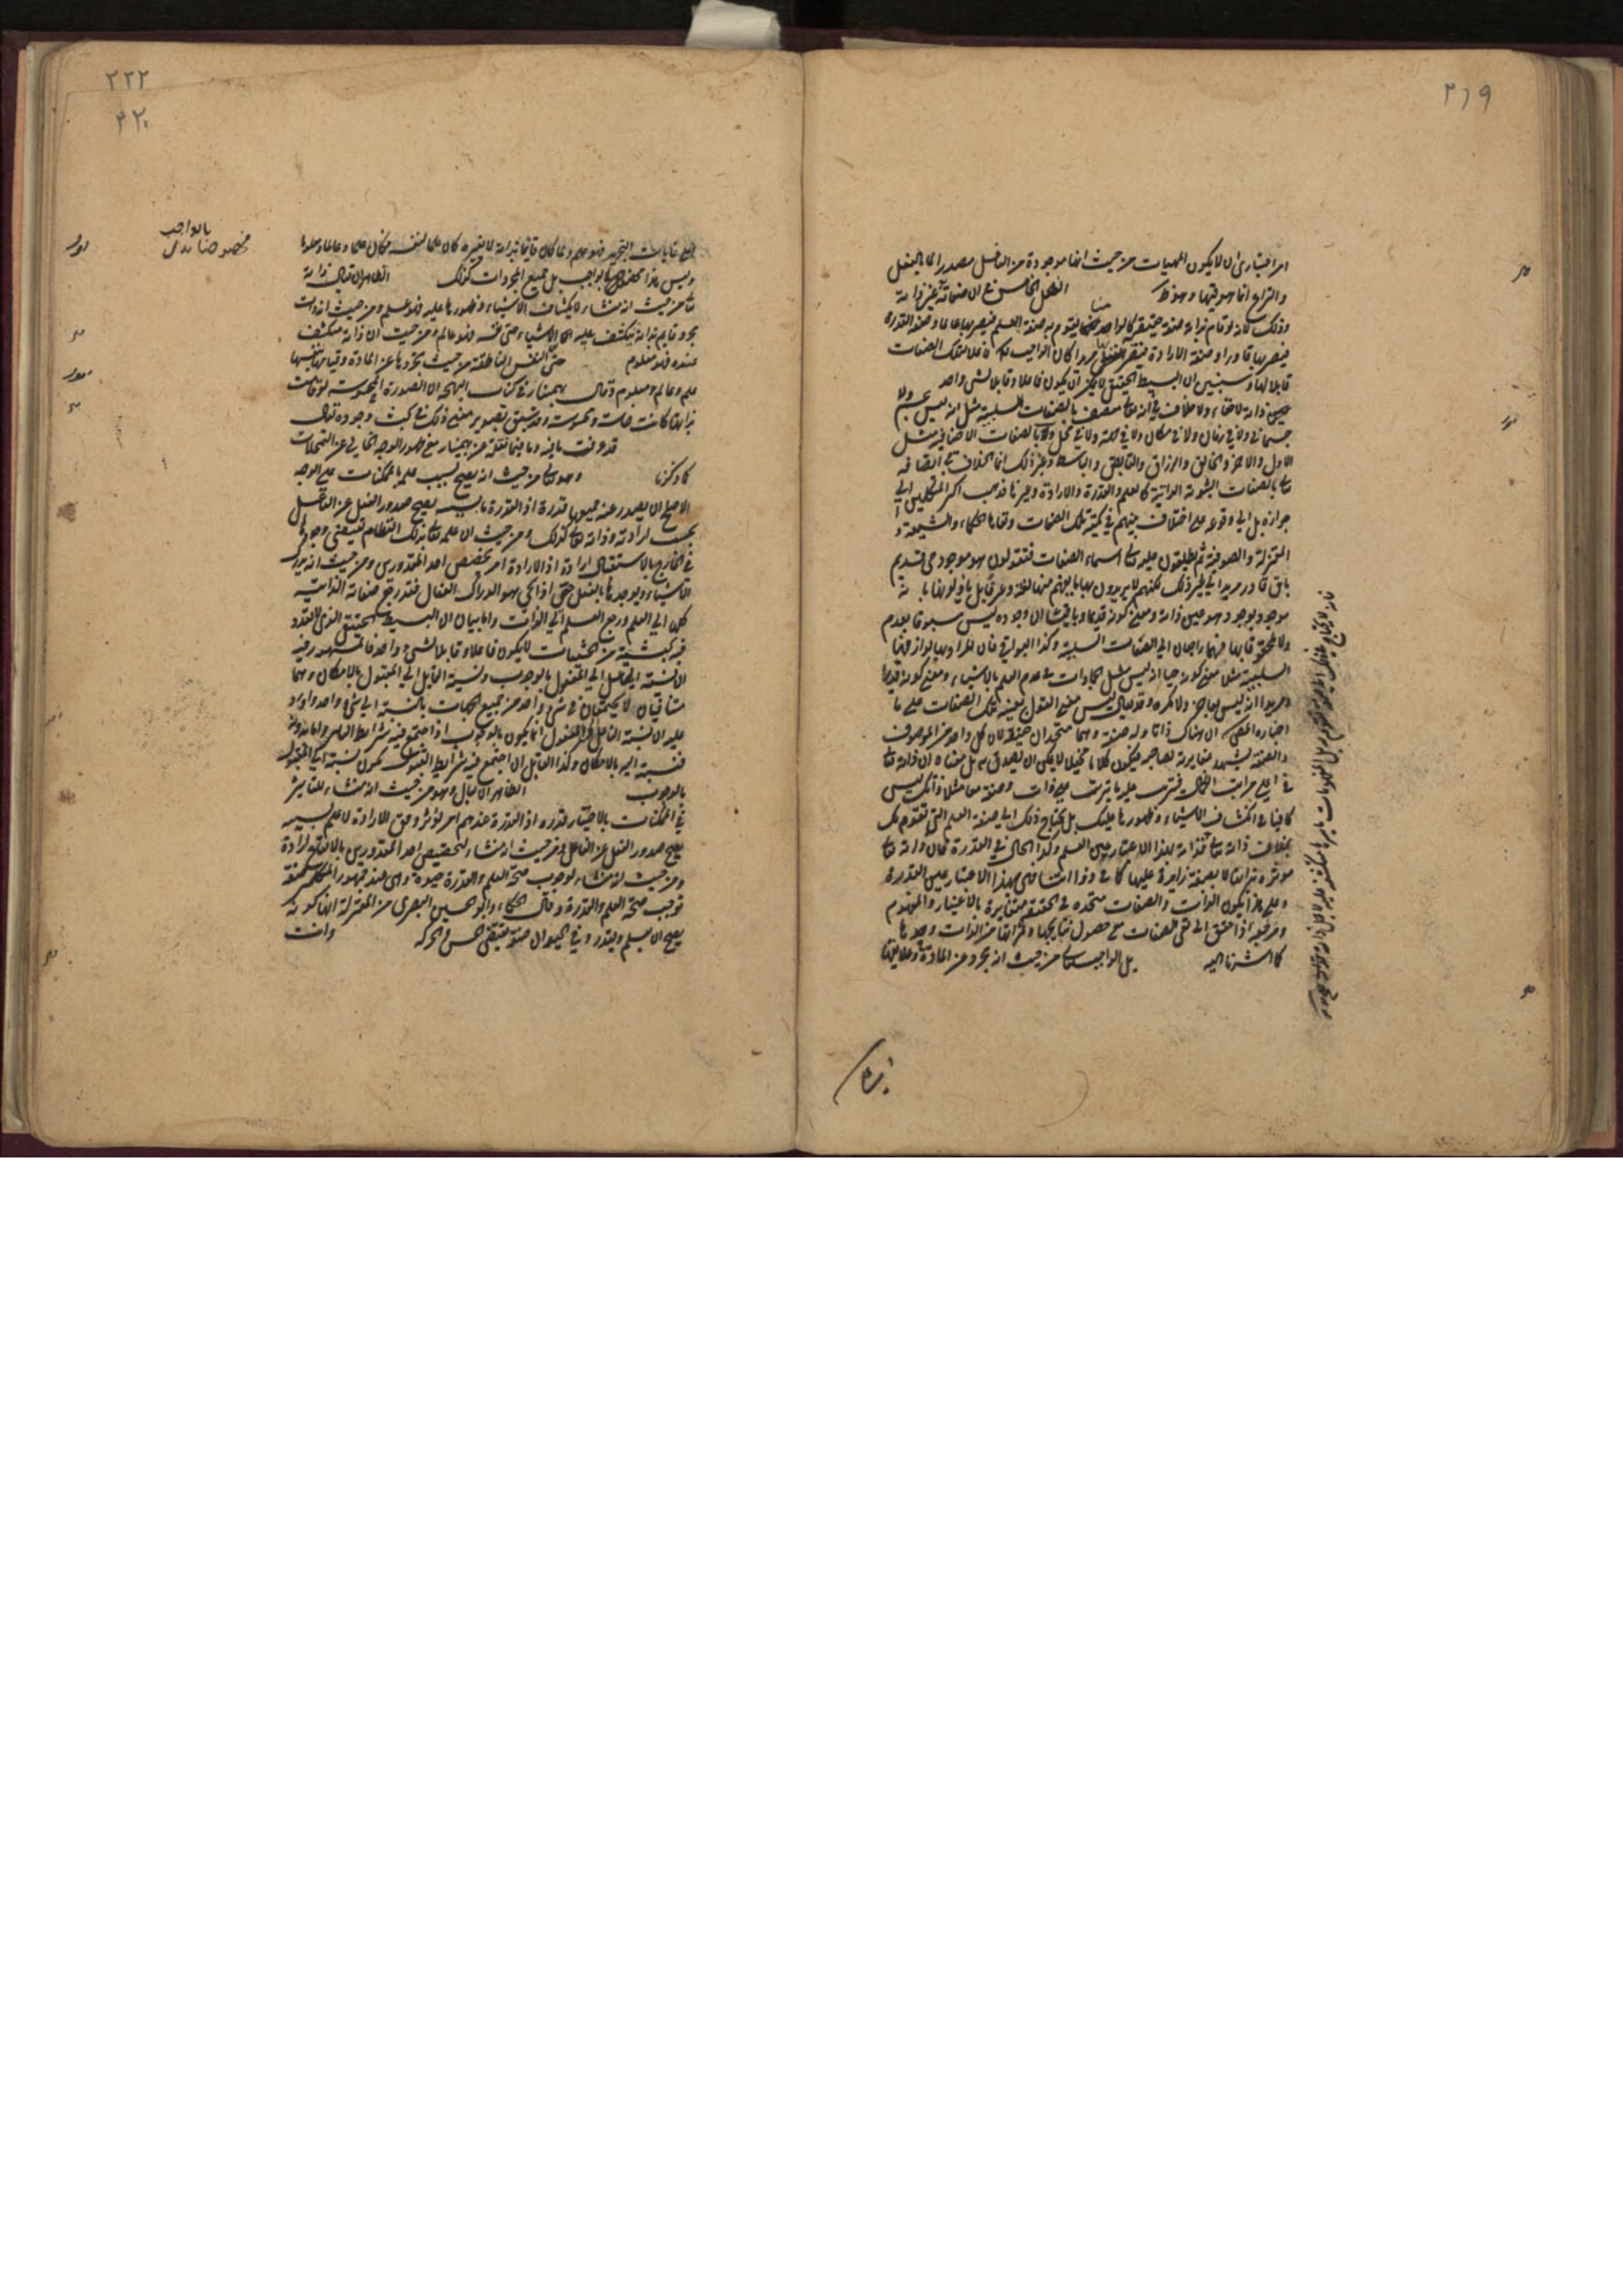 ٢١٩
امر اعتباري ان لا يكون المهيات من حيث انها موجودة من الفاعل مصدرا لها بالفعل
والنزاع انما هو فيها وهو ظ الفصل الخامس في ان صفاته عين ذاته
وذلك لانه لو قام بذاته صفة حقيقية كالواحد منا يقوم به صفة العلم فيصير بها عالما وصفة القدرة
فيصير بها قادرا وصفة الارادة فيصير مريدا لكان الواجب فاعلا لتلك الصفات
قابلا لها وسنبين ان البسيط الحقيقي لا يجوز ان يكون فاعلا وقابلا لشئ واحد
ذاته لا خفاء ولا خلاف في انه تعالى متصف بالصفات السلبية مثل انه ليس بجسم ولا
جسماني ولا في زمان ولا في مكان ولا في جهة ولا في محل وكذا بالصفات الاضافية مثل
الاول والاخر والخالق والرازق والقابض والباسط وغير ذلك انما الخلاف في اتصافه
تعالى بالصفات الثبوتية الذاتية كالعلم والقدرة والارادة وغيرها فذهب اكثر المتكلمين الى
جوازه بل الى وقوعه على اختلاف بينهم في كمية تلك الصفات ونفاها الحكماء والشيعة و
المعتزلة والصوفية ثم يطلقون عليه تعالى اسماء الصفات فيقولون هو موجود حي قديم
باق قادر مريد الى غير ذلك لكنهم لا يريدون بها ما يفهم منها لغة وعرفا بل ياولونها بانه
موجود بوجود هو عين ذاته ومعنى كونه قديما وباقيا ان وجوده ليس مسبوقا بعدم
ولا يلحقه فهما راجعان الى الصفات السلبية وكذا البواقي فان المراد بها لوازمها
السلبية مثلا معنى كونه حيا انه ليس مثل الجمادات في عدم العلم بالاشياء ومعنى كونه قديرا
ومريدا انه ليس بعاجز ولا مكره وقد يقال ليس معنى القول بعينية تلك الصفات على ما
اختاره المص ان هناك ذاتا وله صفة وهما متحدان حقيقة لان كل واحد من الموصوف
والصفة يشهد بمغايرته لصاحبه فيكون كلاما مخيلا لا يمكن ان يصدق به بل معناه ان ذاته تعالى
في اعلى مراتب الكمال فيترتب عليه ما يترتب على ذات وصفة معا مثلا ذاتك ليس
كافيا في انكشاف الاشياء وظهورها عليك بل يحتاج ذلك الى صفة العلم التي تقوم بك
بخلاف ذاته تعالى فذاته بهذا الاعتبار عين العلم وكذا الحال في القدرة فان ذاته تعالى
موثرة بذاتها لا بصفة زايدة عليها كما في ذواتنا فهي بهذا الاعتبار عين القدرة
وعلى هذا يكون الذات والصفات متحدة في الحقيقة متغايرة بالاعتبار والمفهوم
ومرجعه اذا حقق الى نفي الصفات مع حصول نتايجها وثمراتها من الذات وحدها
كما اشرنا اليه بل الواجب تعالى من حيث انه مجرد عن المادة وعلايقها
٢٢٢
٢٢٠
على غايات التجريد فهو علم ولما كان قائما بذاته لا بغيره كان علما لنفسه فكان علما وعالما ومعلوما
وليس هذا مخصوصا بالواجب بل جميع المجردات كذلك الظاهر ان يقال ذاته
تعالى من حيث انه منشاء لانكشاف الاشياء وظهورها عليه فهو علم ومن حيث انه ذات
مجرد قايم بذاته ينكشف عليه الاشياء حتى نفسه فهو عالم ومن حيث ان ذاته منكشف
عنده فهو معلوم حتى النفس الناطقة من حيث تجردها عن المادة وقيامها بنفسها
علم وعالم ومعلوم وقال بهمنيار في كتاب البهجة ان الصورة المحسوسة لو قامت
بذاتها كانت حاسة ومحسوسة وقد سبق تصوير معنى ذلك في بحث وجوده تعالى
قد عرفت ما فيه وما فيما نقله عن بهمنيار مع ظهور الوجه الخالي عن التمحلات
كما ذكرنا وهو تعالى من حيث انه يصح بسبب علمه بالممكنات على الوجه
الاصلح ان يصدر عنه جميعها قدرة اذ القدرة ما بسببه يصح صدور الفعل عن الفاعل
بحسب ارادته وذاته تعالى كذلك ومن حيث ان علمه تعالى بذلك النظام يقتضي وجودها
في الخارج بالاستقلال ارادة اذ الارادة امر يخصص احد المقدورين ومن حيث انه يدرك
الاشياء ويوجدها بالفعل حي اذ الحي هو الدراك الفعال فقد رجع صفاته الذاتية
كلها الى العلم ورجع العلم الى الذات واما بيان ان البسيط الحقيقي الذي لا تعدد
فيه بحيثية من الحيثيات لا يكون فاعلا وقابلا لشئ واحد فالمشهور فيه
ان نسبة الفاعل الى المفعول بالوجوب ونسبة القابل الى المقبول بالامكان وهما
متنافيان لا يجتمعان في شئ واحد من جميع الجهات بالنسبة الى شئ واحد واورد
عليه ان نسبة الفاعل الى المفعول انما يكون بالوجوب اذا اجتمع فيه شرايط التاثير واما بدونه
فنسبته اليه بالامكان وكذا القابل اذا اجتمع فيه شرايط القبول يكون نسبته الى المقبول
بالوجوب الظاهر ان يقال وهو من حيث انه منشاء للتاثير
في الممكنات بالاختيار قدرة اذ القدرة عندهم امر يؤثر وفق الارادة لا علم بسببه
يصح صدور الفعل عن الفاعل ومن حيث انه منشاء لتخصيص احد المقدورين بالايقاع ارادة
ومن حيث انه منشاء لوجوب صحة العلم والقدرة حيوة وهي عند جمهور المتكلمين صفة
توجب صحة العلم والقدرة وقال الحكماء وابو الحسين البصري من المعتزلة انها كونه
يصح ان يعلم ويقدر وفي الحيوان صفة تقتضي الحس والحركة وانت
بالواجب
مخصوصا بدل